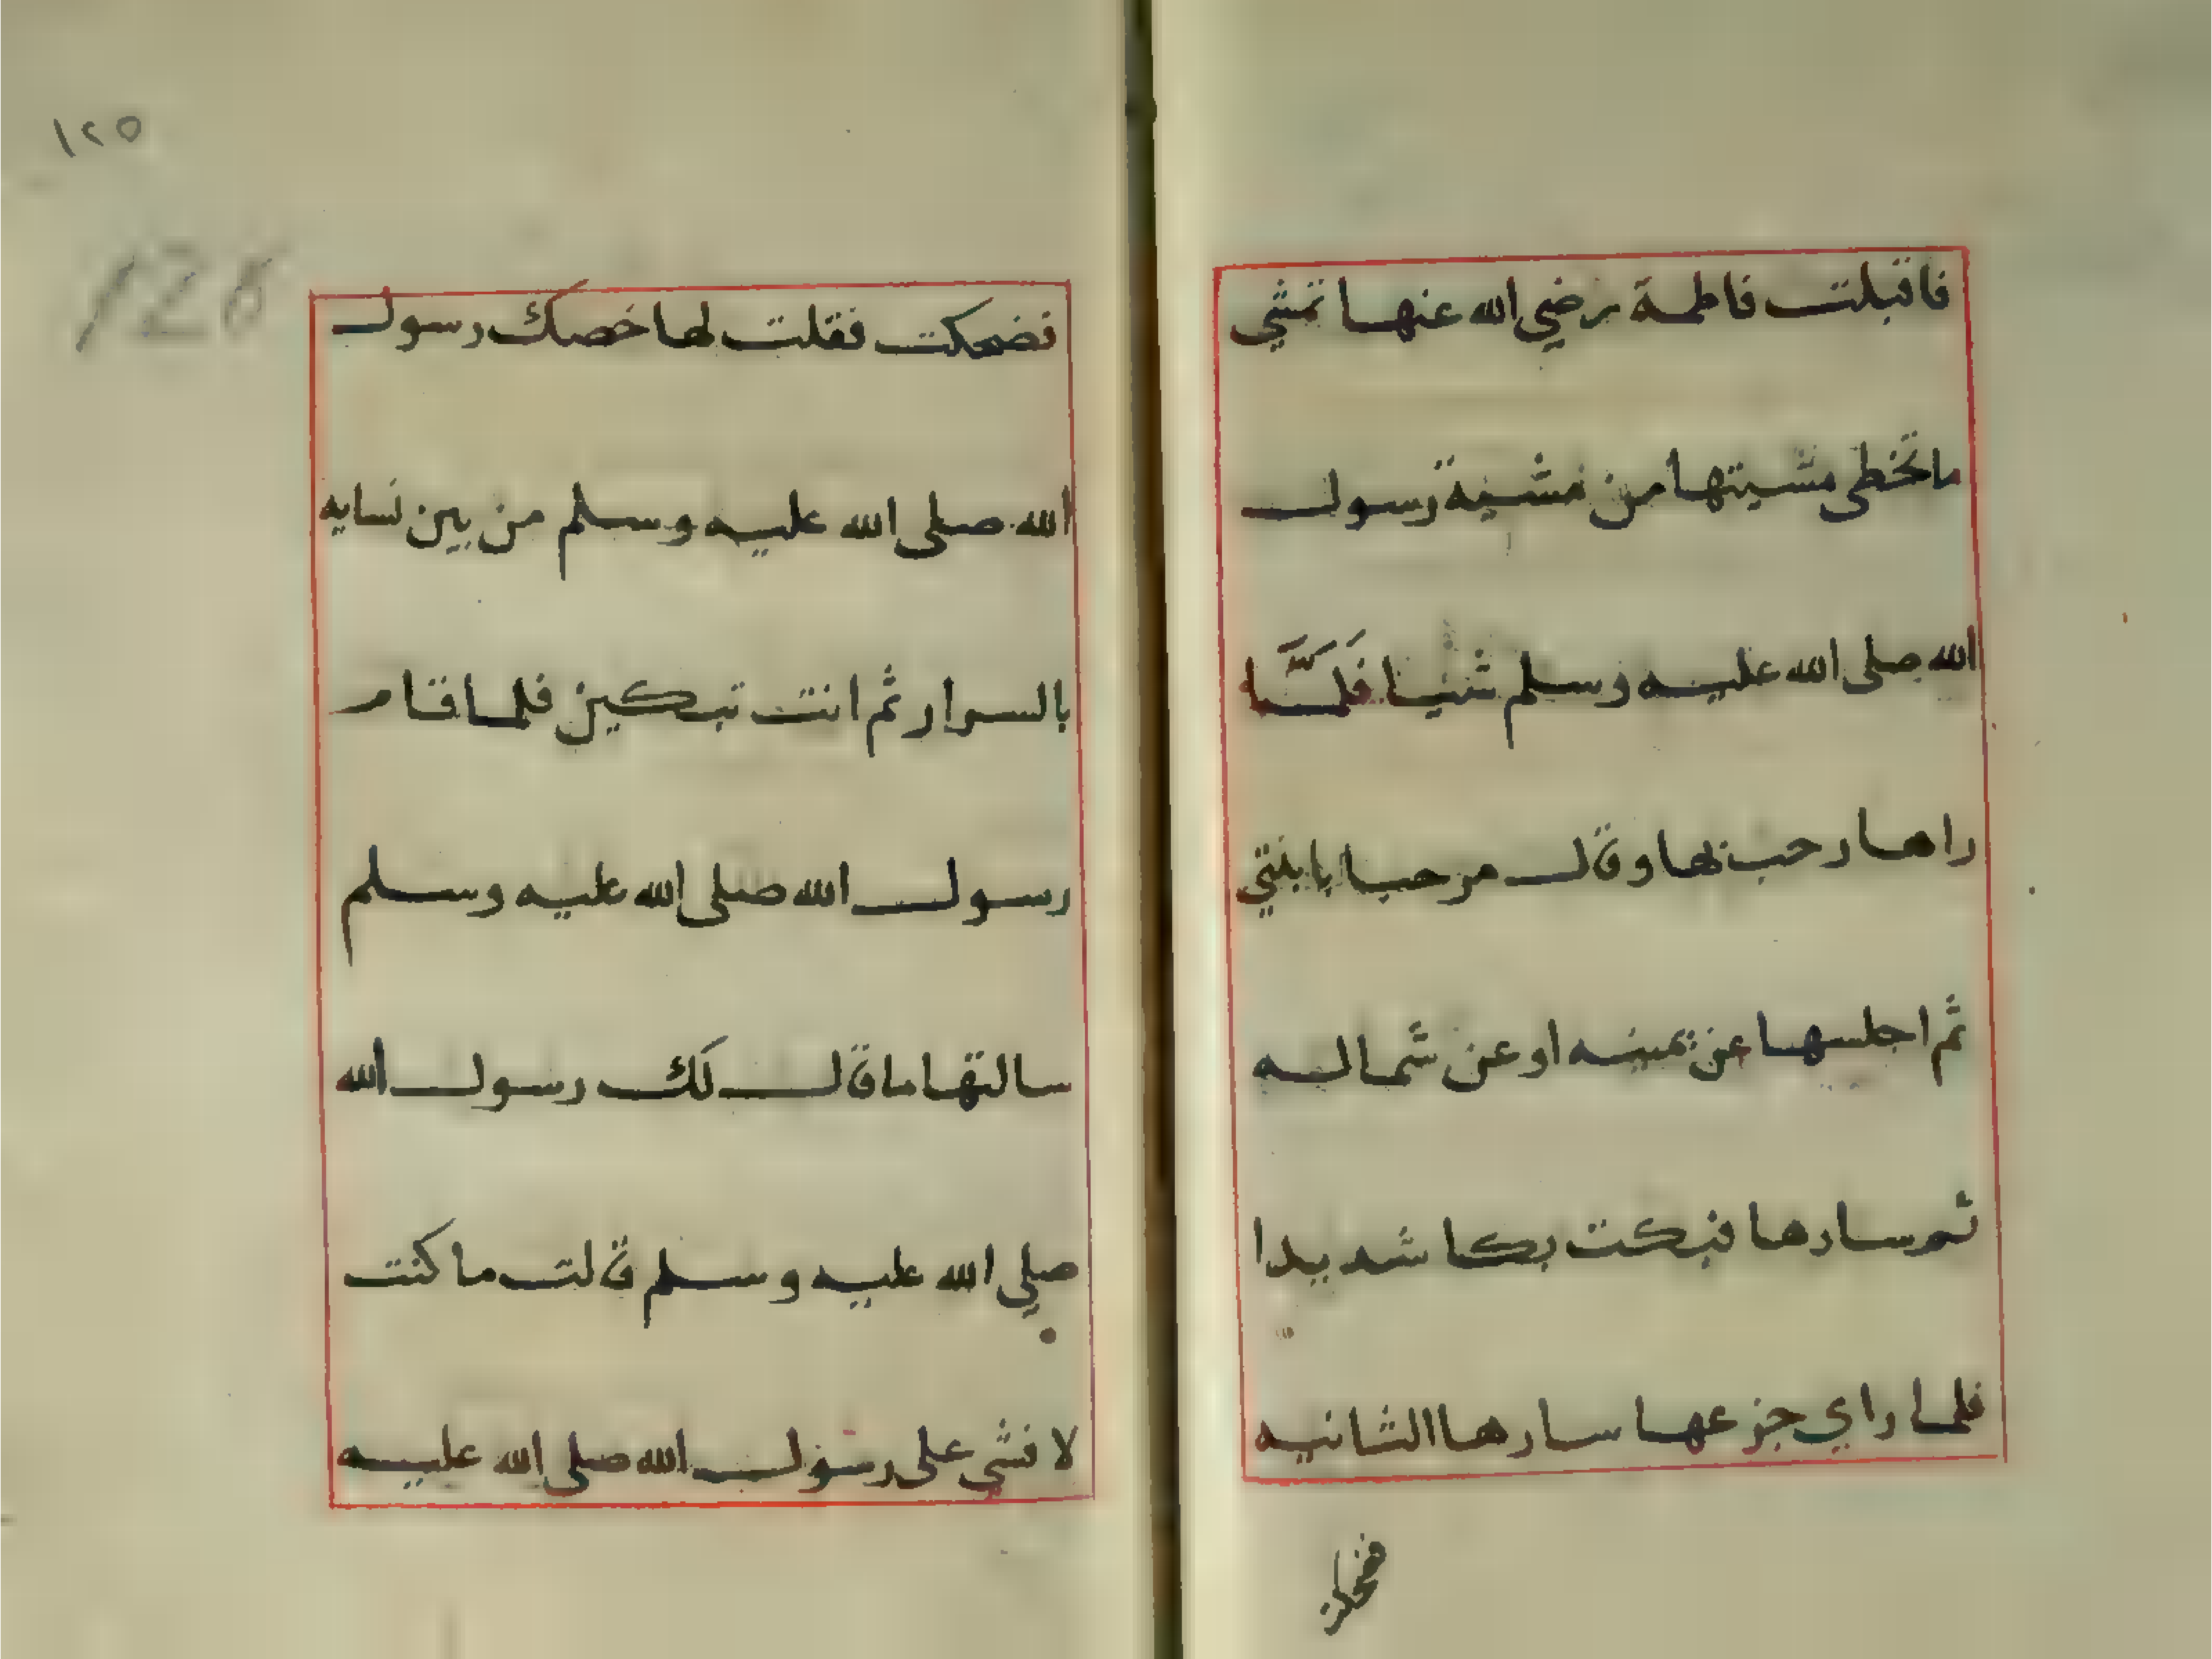 فاقبلت فاطمة رضي الله عنها تمشي
ما تخطى مشيتها من مشية رسول
الله صلى الله عليه وسلم شيا فَلَمَّا
راها رحب بها وقال مرحبا يا بنتي
ثم اجلسها عن يمينه او عن شماله
ثم سارها فبكت بكا شديدا
فلما راي جزعها سارها الثانيه
فضحكت
١٢٥
فضحكت فقلت لها خصك رسول
الله صلى الله عليه وسلم من بين نسايه
بالسرار ثم انت تبكين فلما قام
رسول الله صلى الله عليه وسلم
سالتها ما قال لك رسول الله
صلي الله عليه وسلم قالت ما كنت
لا فشي على رسول الله صلى الله عليه